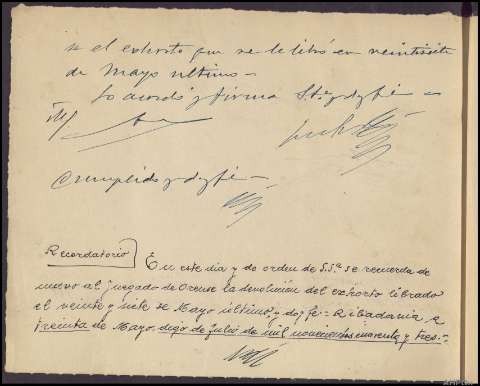 el exhorto que se le libró en veintisiete
de Mayo último =
Lo acordó y firma S.Sª y doy fé =
Cumplido y doy fé =
Recordatorio
En este dia y de orden de S.Sª se recuerda de
nuevo al juzgado de Orense la devolución del exhorto librado
el veinte y siete de Mayo último y doy fe = Ribadavia a
treinta de Mayo, digo de Julio de mil novecientos cuarenta y tres.=